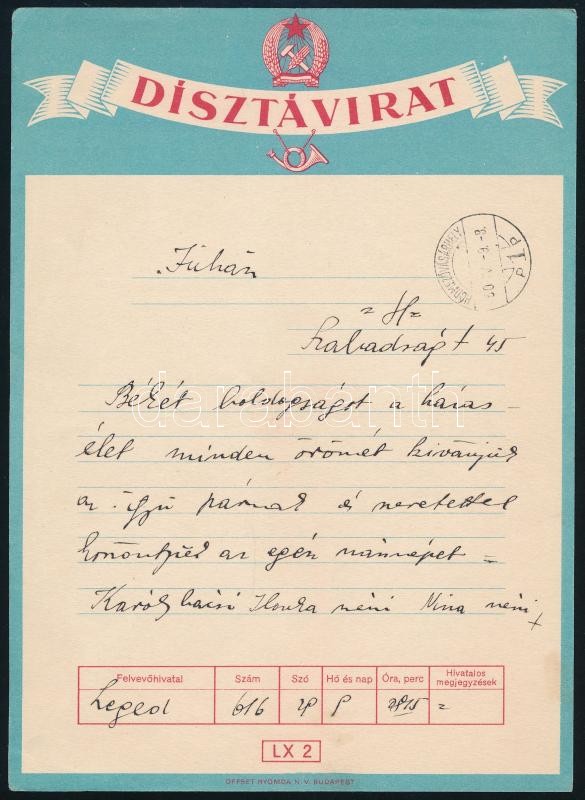 DÍSZTÁVIRAT
Juhász
= H =
Szabadság t 45
Békét boldogságot a házas
élet minden örömét kívánjuk
az ifjú párnak és szeretettel
köszöntjük az egész násznépet =
Károly bácsi Ilonka néni Mina néni +
HÓDMEZŐVÁSÁRHELY
P.T.P
darabanth
Felvevőhivatal Szám Szó Hó és nap Óra, perc Hivatalos megjegyzések
Szeged 616 =
LX 2
OFFSET NYOMDA N. V. BUDAPEST